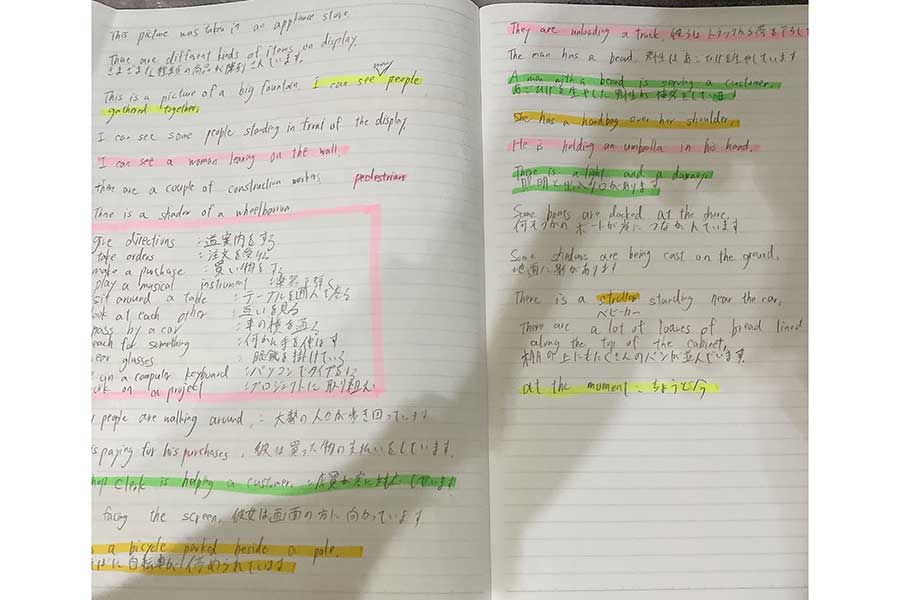 This picture was taken in an appliance store
There are different kinds of items on display.
さまざまな種類の商品が陳列されています。
This is a picture of a big fountain. I can see people
gathered together.
I can see some people standing in front of the display.
I can see a woman leaning on the wall.
there are a couple of construction workers pedestrian
There is a shadow of a wheelbarrow
give directions : 道案内をする
take orders : 注文を受ける
make a purchase : 買い物をする
play a musical instrument : 楽器を弾く
sit around a table : テーブルを囲んで座る
look at each other : 互いを見る
pass by a car : 車の横を通る
reach for something : 何かに手を伸ばす
wear glasses : 眼鏡を掛けている
on a computer keyboard : パソコンでタイプをする
work on a project : プロジェクトに取り組む
people are walking around. : 大勢の人々が歩き回っています
is paying for his purchases. 彼は買った物の支払いをしています。
shop clerk is helping a customer. : 店員が客に対応しています
facing the screen. 彼女は画面の方に向かっています
a bicycle parked beside a pole.
そばに自転車が停められています
They are unloading a truck. 彼らはトラックから荷を下ろして
The man has a beard. 男性はあごひげを生やしています
A man with a beard is serving a customer.
あごひげを生やした男性が接客をしています
She has a handbag over her shoulder.
He is holding an umbrella in his hand.
There is a light and a doorway.
照明と出入り口があります
Some boats are docked at the shore.
何そうかのボートが岸につながれています
Some shadows are being cast on the ground.
地面に影があります
There is a stroller standing near the car.
ベビーカー
There are a lot of loaves of bread lined
along the top of the cabinet.
棚の上にたくさんのパンが並んでいます.
at the moment : ちょうど今